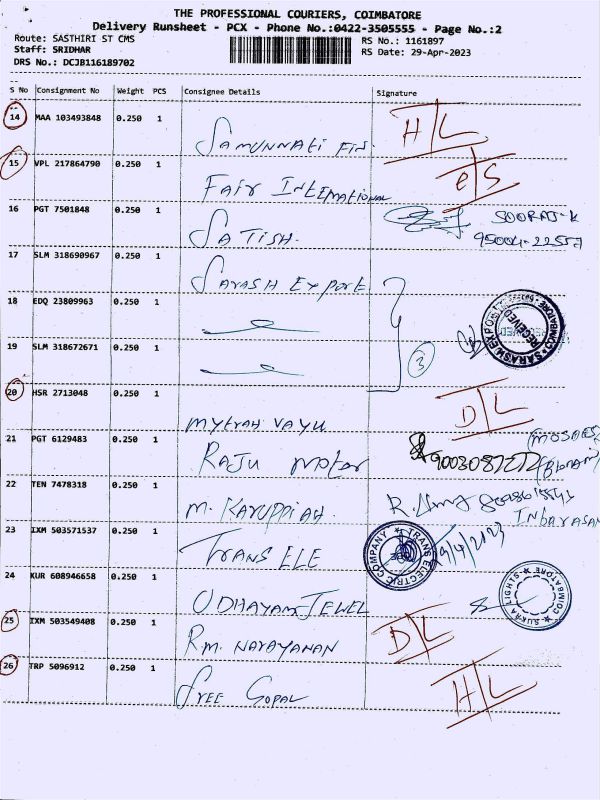 THE PROFESSIONAL COURIERS, COIMBATORE
Delivery Runsheet - PCX - Phone No.:0422-3505555 - Page No.:2
Route: SASTHIRI ST CMS
RS No.: 1161897
Staff: SRIDHAR
RS Date: 29-Apr-2023
DRS No.: DCJB116189702
S No Consignment No Weight PCS Consignee Details Signature
14 MAA 103493848 0.250 1
SAMUNNATI FIN H/L
15 VPL 217864790 0.250 1
FAIR INTERNATIONAL
16 PGT 7501848 0.250 1 SOORAJ-K
SATISH.
17 SLM 318690967 0.250 1
SARASH EXPORT
18 EDQ 23809963 0.250 1
SARASH EXPORTS COIMBATORE RECEIVED
19 SLM 318672671 0.250 1
3
20 HSR 2713048 0.250 1
MYTRAH VAYU D/L
21 PGT 6129483 0.250 1
RAJU MOTOR
22 TEN 7478318 0.250 1
M. KARUPPIAH Inbarasan
23 IXM 503571537 0.250 1
TRANS ELE TRANS ELECTRIC COMPANY
24 KUR 608946658 0.250 1
UDHAYAM JEWEL SUKRA LIGHTS COIMBATORE
25 IXM 503549408 0.250 1
RM. NARAYANAN D/L
26 TRP 5096912 0.250 1
SREE GOPAL H/L